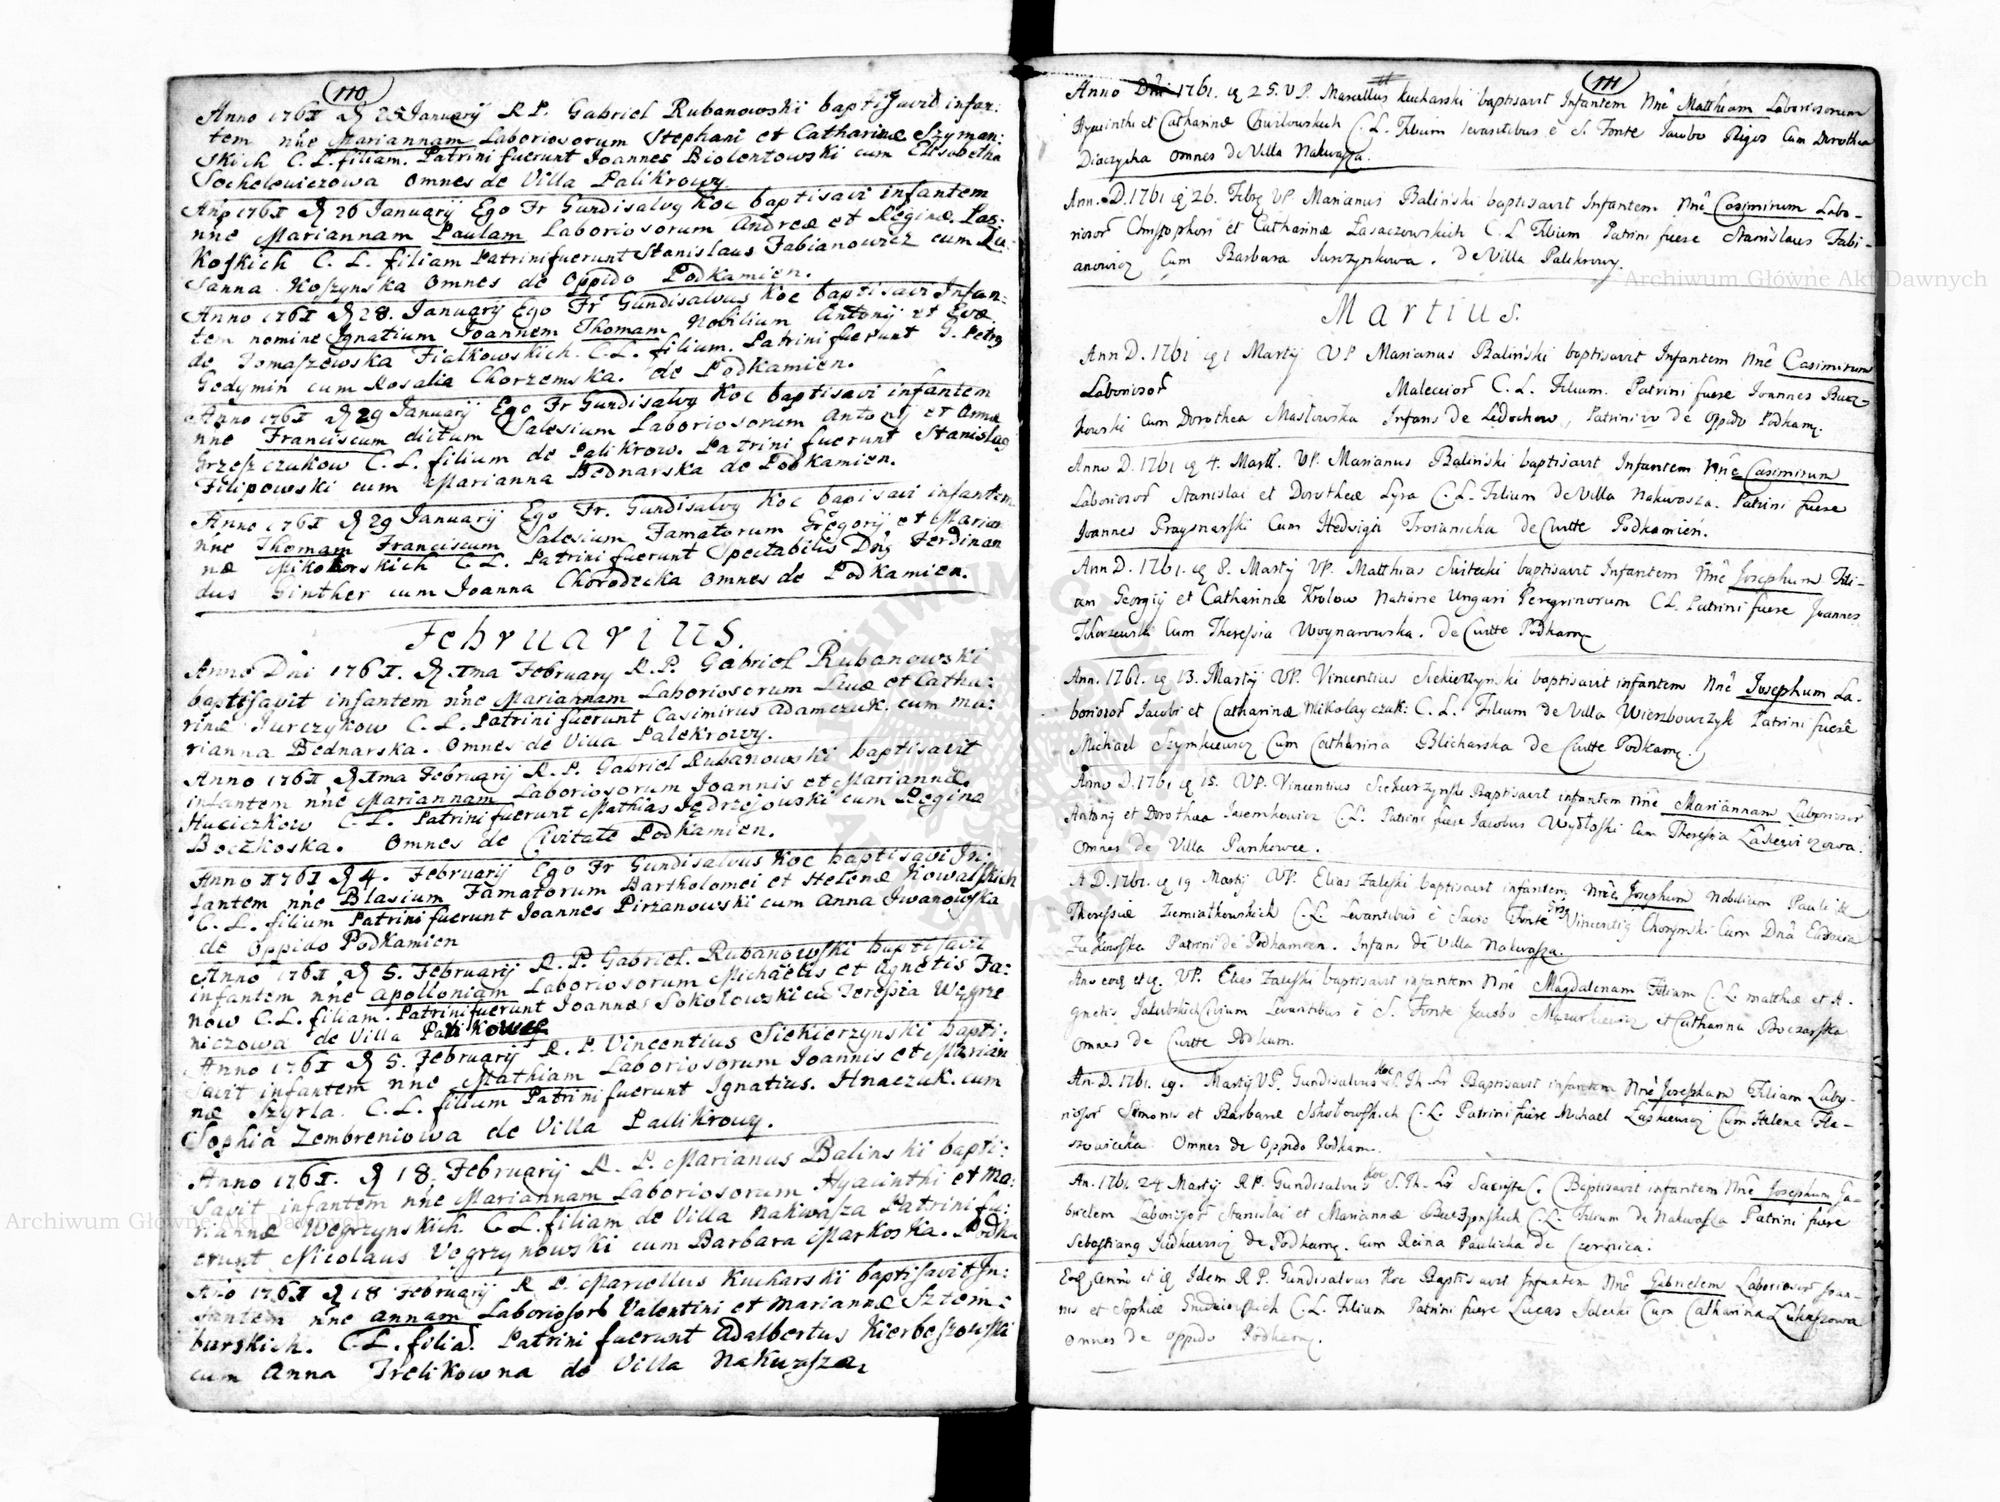 110
Anno 1761 25 January R. P. Gabriel Rubanowski baptisavit infan:
tem nne Mariannam Laboriosorum Stephani et Catharinæ Szyman:
skich C. L. filiam. Patrini fuerunt Joannes Biolentowski cum Elisabetha
Sochelewiczowa Omnes de Villa Palikrowy
Año 1761 26 Januarij Ego Fr Gundisalvg Koc baptisavi infantem
nne Mariannam Paulam Laboriosorum Andreæ et Reginæ
kofkich C. L. filiam Patrini fuerunt Stanislaus Fabianowicz cum
Sanna Koszynska Omnes de Oppido Podkamien.
Anno 1761 28. January Ego Fr Gundisalvus Koc baptisavi Infan:
tem nomine Ignatium Joannem Thomam Nobilium Antonij et Evæ
de Tomaszewska Fialkowskich. C. L. filium. Patrini fuerunt G. Petrg
Gedymin cum Rosalia Chorzemska. de Podkamien.
Anno 1761 29 January Ego Fr Gundisalvg Koc baptisavi infantem
nne Franciscum dictum Salesium Laboriosorum Antonij et Annæ
Grzeszczukow C. L. filium de Palikrow. Patrini fuerunt Stanislag
Filipowski cum Marianna Bednarska de Podkamien.
Anno 1761 29 January Ego Fr. Gundisalvg Koc baptisavi infantem
nne Thomam Franciscum Salesium Famatorum Gregorij et Marian
næ Mikolorskich C. L. Patrini fuerunt Spectabilis Dng Ferdinan
dus Ginther cum Joanna Chorodecka Omnes de Podkamien.
Februarius.
Anno Dni 1761. Ima February R. P. Gabriel Rubanowski
baptisavit infantem nne Mariannam Laboriosorum Lucæ et Catha:
rinæ Jurczykow C. L. Patrini fuerunt Casimirus Adamczuk. cum Ma:
rianna Bednarska. Omnes de Villa Palekrowy.
Anno 1761 Ima Februarij R. P. Gabriel Rubanowski baptisavit
infantem nne Mariannam Laboriosorum Joannis et Mariannæ
Huciczkow C. L. Patrini fuerunt Mathias Jędrzejouski cum Regina
Boczkoska. Omnes de Civitate Podkamien.
Anno 1761 4. Februarij Ego Fr Gundisalvus Koc baptisavi In:
fantem nne Blasium Famatorum Bartholomei et Helenæ Kowalskich
C. L. filium Patrini fuerunt Joannes Pirzanowski cum Anna Jwanowska
de Oppido Podkamien
Anno 1761 5. Februarij R. P. Gabriel. Rubanowski baptisavit
infantem nne Apolloniam Laboriosorum Michaelis et Agnetis Fa:
now C. L. filiam. Patrini fuerunt Joannes Sokolowski cu Teressia Węgrze
niczowa de Villa Pankowce
Anno 1761 5. February R. P. Vincentius Siekierzynski bapti:
savit infantem nne Mathiam Laboriosorum Joannis et Marian
næ Szyrla. C. L. filium Patrini fuerunt Ignatius. Hnaczuk. cum
Sophia Zembreniowa de Villa Pallikrowg.
Anno 1761. 18. Februarij R. P. Marianus Balinski bapti:
savit infantem nne Mariannam Laboriosorum Hyacinthi et Ma:
riannæ Węgrzynskich C. L. filiam de Villa Nakwasza Patrini fu:
erunt Nicolaus Vęgrzynowski cum Barbara Markoska. Podka
Año 1761 18 Februarij R. P. Marcellus Kucharski baptisavit In:
fantem nne Annam Laboriosorũ Valentini et Mariannæ Sztem:
burskich. C. L. filiã. Patrini fuerunt Adalbertus Kierbeszowski
cum Anna Trelikowna de Villa Nakwasza.
111
Anno Dni 1761. 25. VP. Marcellus Kucharski baptisavit Infantem Nnê Matthæam Laboriosorum
Hyacinthi et Catharinæ Chwilowskich C. L. Filium levantibus è S. Fonte Jacobo Rigos Cum Dorothea
Diaczycha Omnes de Villa Nakwasza.
Ann. D. 1761 26. Febrg VP. Marianus Baliński baptisavit Infantem Nnê Casimirum Labo-
riosor̃ Christophori et Catharinæ Lasaczowskich C. L. Filium Patrini fuere Stanislaus Fabi-
anowicz Cum Barbara Jurczynkowa. de Villa Palikrowy.
Martius.
Ann D. 1761 1 Martij VP Marianus Baliński baptisavit Infantem Nnê Casimirum
Laboriosor̃ Maleccior̃ C. L. Filium. Patrini fuere Joannes Bucz-
kowski Cum Dorothea Masłowska Infans de Ledochow, Patrini vo de Oppido Podkam.
Anno D. 1761 4. Martii. VP. Marianus Baliński baptisavit Infantem Nnê Casimirum
Laboriosor̃ Stanislai et Dorotheæ Lyra C. L. Filium de Villa Nakwasza. Patrini fuere
Joannes Praysnarski Cum Hedwigâ Troianicha de Cvitte Podkamień.
Ann D. 1761. 8. Martij VP. Matthias Switecki baptisavit Infantem Nnê Josephum Fili-
um Georgij et Catharinæ Krolow Natione Ungari Peregrinorum C L. Patrini fuere Joannes
Tchorzewski Cum Theressia Woynarowska. de Cvitte Podkam
Ann. 1761. 13. Martij VP. Vincentius Siekierzynski baptisavit infantem Nnê Josephum La-
boriosor̃ Jacobi et Catharinæ Mikolayczuk: C. L. Filium de Villa Wierzbowczyk Patrini fuere
Michael Szymkiewicz Cum Catharina Blicharska de Cvitte Podkam.
Anno D. 1761 15. VP. Vincentius Siekierzynski Baptisavit infantem Nnê Mariannam Laboriosor̃
Antonij et Dorotheæ Jaremkowicz C. L. Patrini fuere Jacobus Wydłoski Cum Theressia Laskewiczowa.
Omnes de Villa Pankowce.
A D. 1761. 19 Martij VP. Elias Zaleski baptisavit infantem Nnê Josephum Nobilium Pauli &
Theressiæ Ziemiałkowskich C. L. Levantibus è Sacro Fonte Vincentig Chorynski Cum Dnâ
Żukowska Patrini de Podkamien. Infans de Villa Nakwasza.
Ano eoq et VP. Elias Zaleski baptisavit infantem Nnê Magdalenam Filiam C. L. Matthiæ et A-
gnetis Jakubskich Civium Levantibus è S. Fonte Jacobo Mazurkiewicz et Catharina Boczarska
Omnes de Cvitte Podkam.
An. D. 1761. Martij VP. Gundisalvus Koc S. Th. Lr Baptisavit infantem Nnê Josepham Filiam Labo-
riosor̃ Simonis et Barbaræ Sokołowskich C. L. Patrini fuere Michael Laskiewicz Cum Helena Hla-
Omnes de Oppido Podkam.
An. 1761 24 Martij R P. Gundisalvus Koc S. Th. Lr Baptisavit infantem Nnê Josephum Ga-
brielem Laboriosor̃ Stanislai et Mariannæ C. L. Filium de Nakwasza Patrini fuere
Sebastiang Judkiewicz de Podkam. Cum Reina Paulicha de Czernica.
Eoq Anno et Idem R P. Gundisalvus Koc Baptisavit Infantem Nnê Gabrielem Laboriosor̃ Joan-
nis et Sophiæ C. L. Filium Patrini fuere Lucas Saleski Cum Catharina
Omnes de Oppido Podkam.
Archiwum Główne Akt Dawnych
Archiwum Główne Akt Dawnych